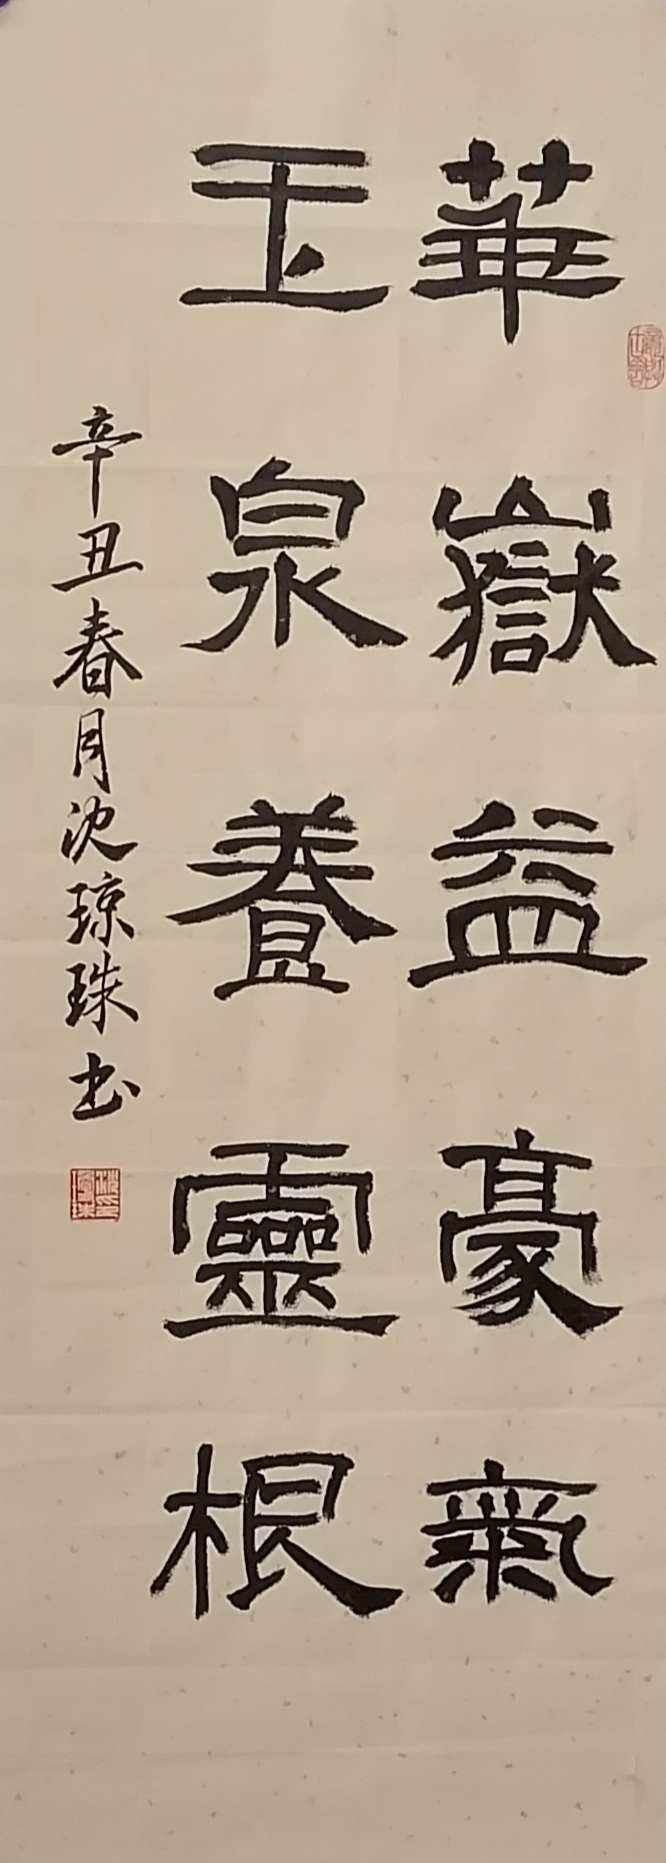 華嶽益豪氣
玉泉養靈根
辛丑春月沈琼珠书